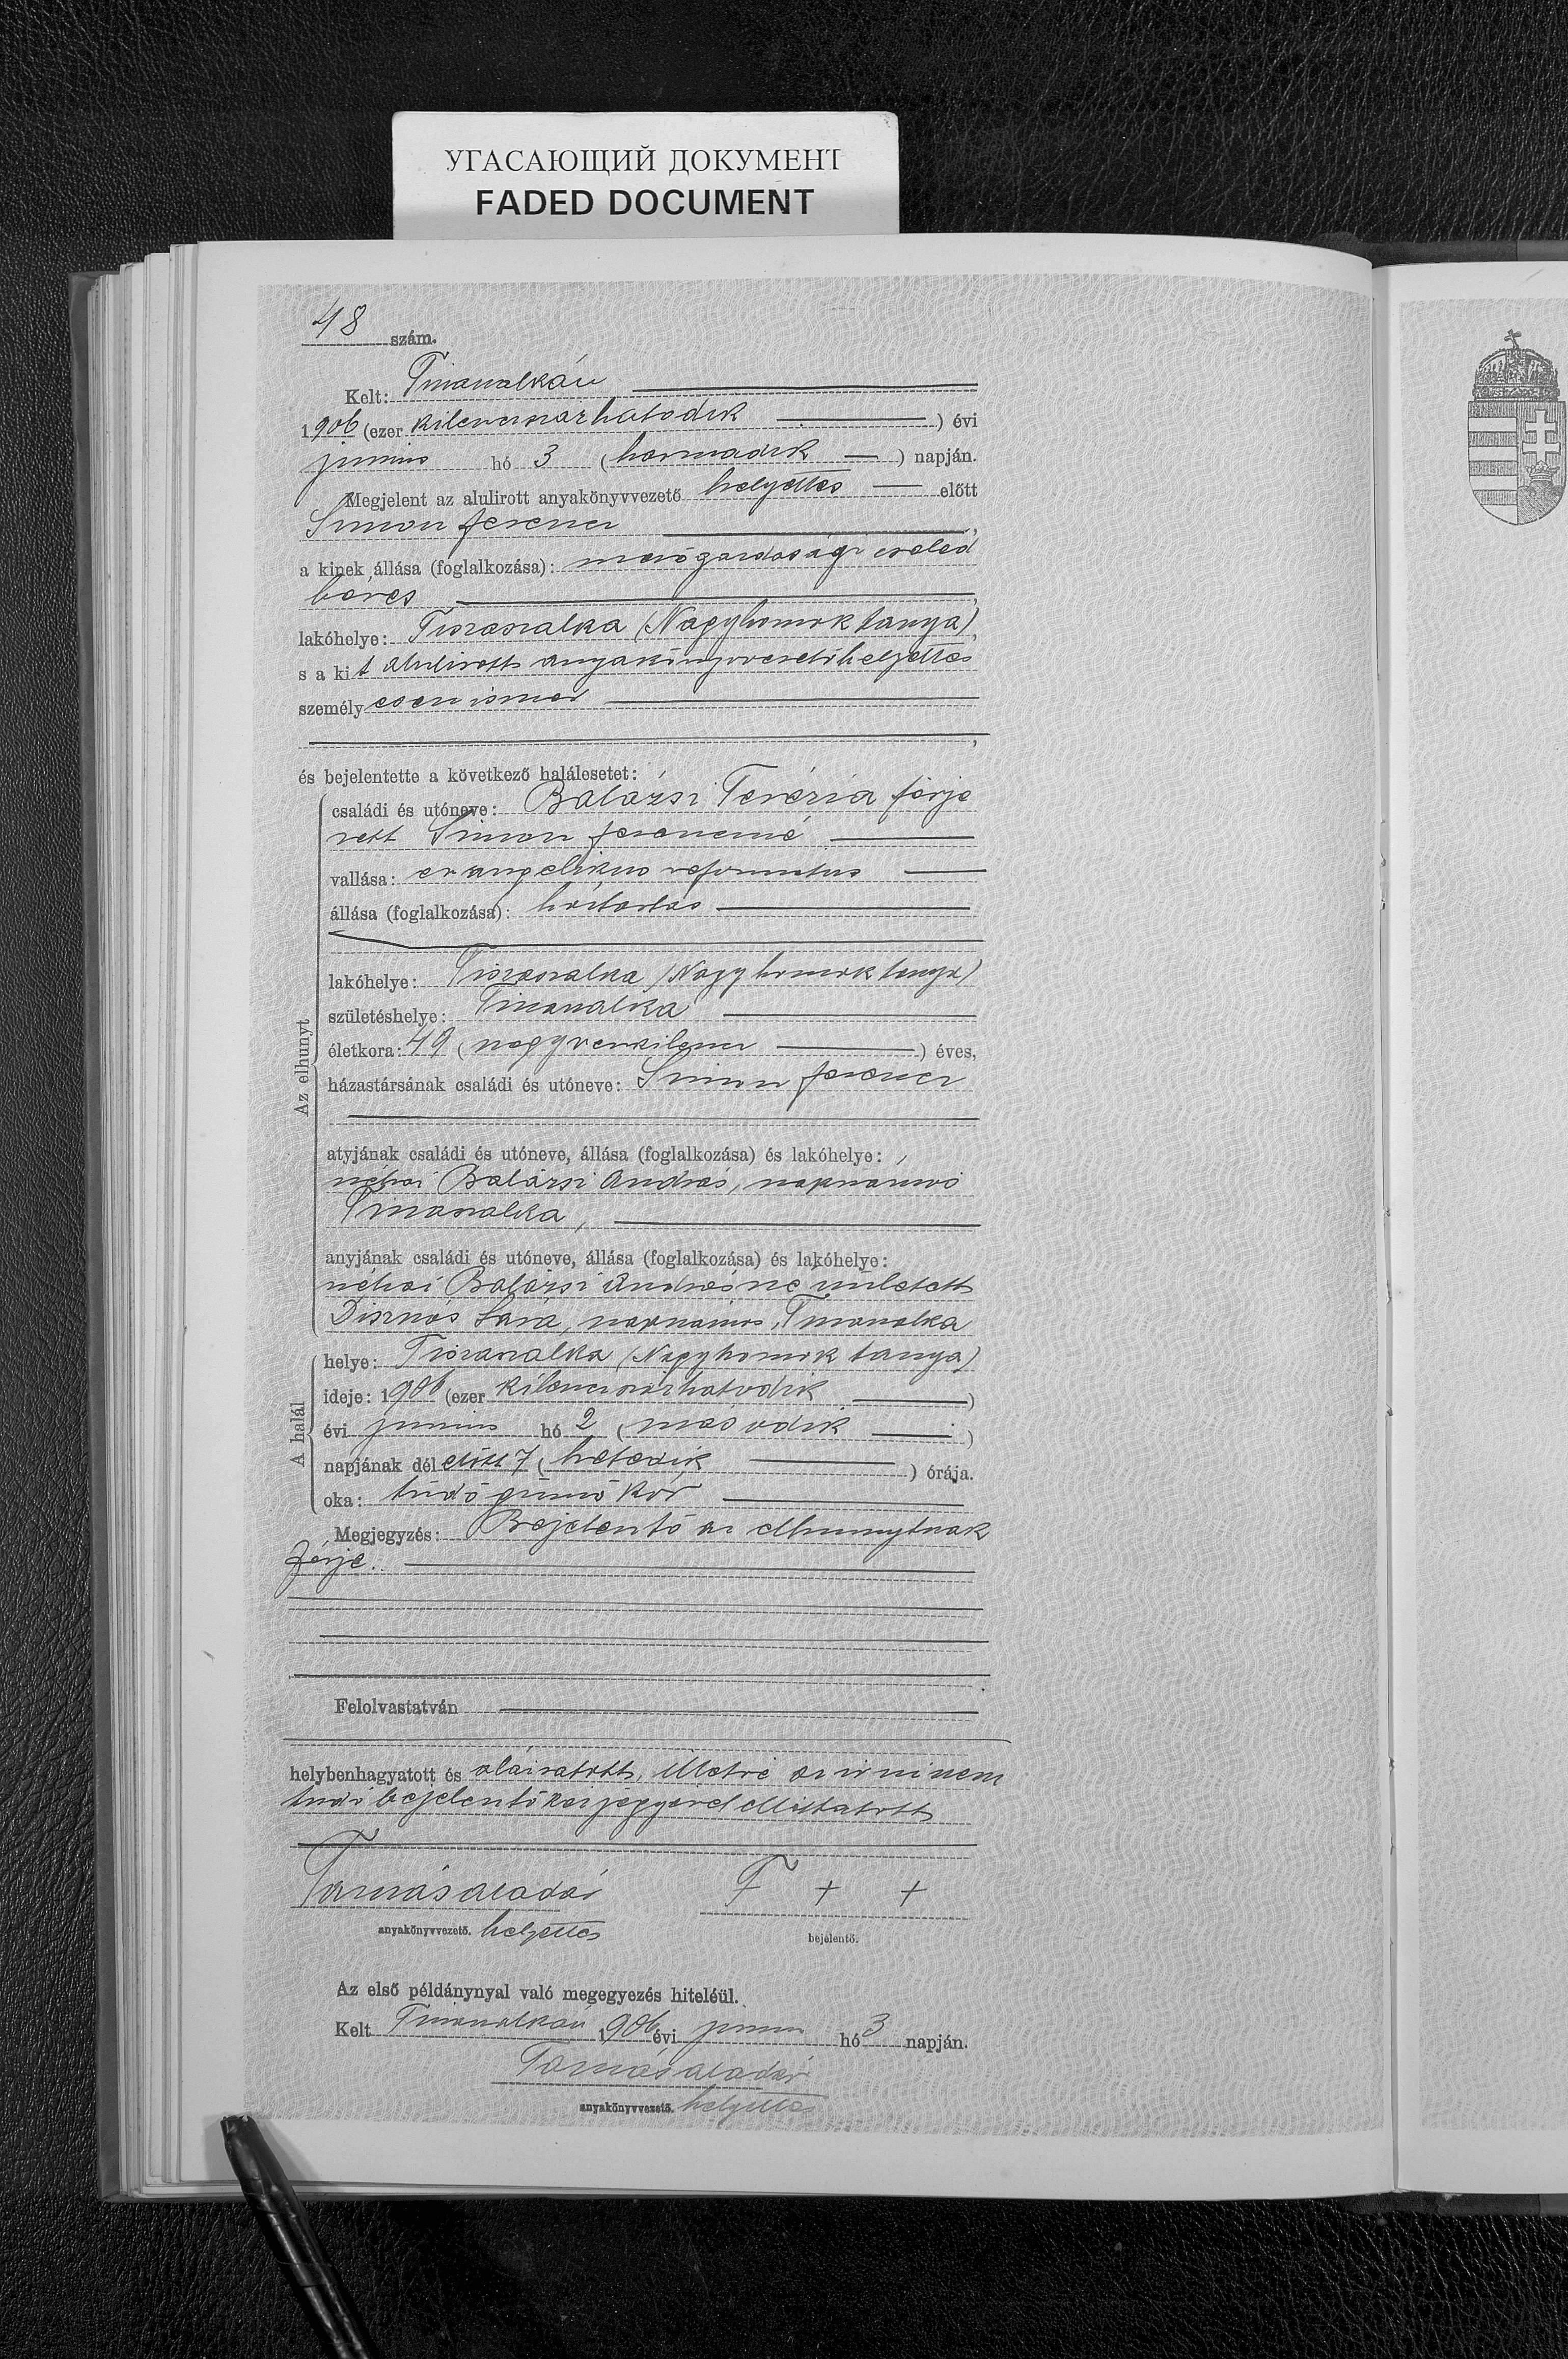 УГАСАЮЩИЙ ДОКУМЕНТ
FADED DOCUMENT
48 szám.
Kelt: Tiszaszalkán
1906 (ezer kilenczszázhatodik) évi
junius hó 3 (harmadik) napján.
Megjelent az alulirott anyakönyvvezető helyettes előtt
Simon Ferencz,
a kinek állása (foglalkozása): mezőgazdasági cseléd
béres,
lakóhelye: Tiszaszalka (Nagyhomok tanya),
s a kit alulirott anyakönyvvezetőhelyettes
személyesen ismer
,
és bejelentette a következő halálesetet:
Az elhunyt
családi és utóneve: Balázsi Terézia férje
zett Simon Ferenczné
vallása: evangelikus reformatus
állása (foglalkozása): háztartás
lakóhelye: Tiszaszalka (Nagyhomok tanya)
születéshelye: Tiszaszalka
életkora: 49 (negyvenkilencz) éves,
házastársának családi és utóneve: Simon Ferencz
atyjának családi és utóneve, állása (foglalkozása) és lakóhelye:
néhai Balázsi András, napszámos
Tiszaszalka,
anyjának családi és utóneve, állása (foglalkozása) és lakóhelye:
néhai Balázsi Andrásné született
Disznós Sára, napszámos, Tiszaszalka
A halál
helye: Tiszaszalka (Nagyhomok tanya)
ideje: 1906 (ezer kilenczszázhatodik)
évi junius hó 2 (második)
napjának délelőtt 7 (hetedik) órája.
oka: tüdőgümőkór
Megjegyzés: Bejelentő az elhunytnak
férje.
Felolvastatván
helybenhagyatott és aláiratott, illetve az irni nem
tudó bejelentő kézjegyével elláttatott
Tamás Aladár F + +
anyakönyvvezető. helyettes bejelentő.
Az első példánynyal való megegyezés hiteléül.
Kelt Tiszaszalkán 1906 évi junius hó 3 napján.
Tamás Aladár
anyakönyvvezető. helyettes